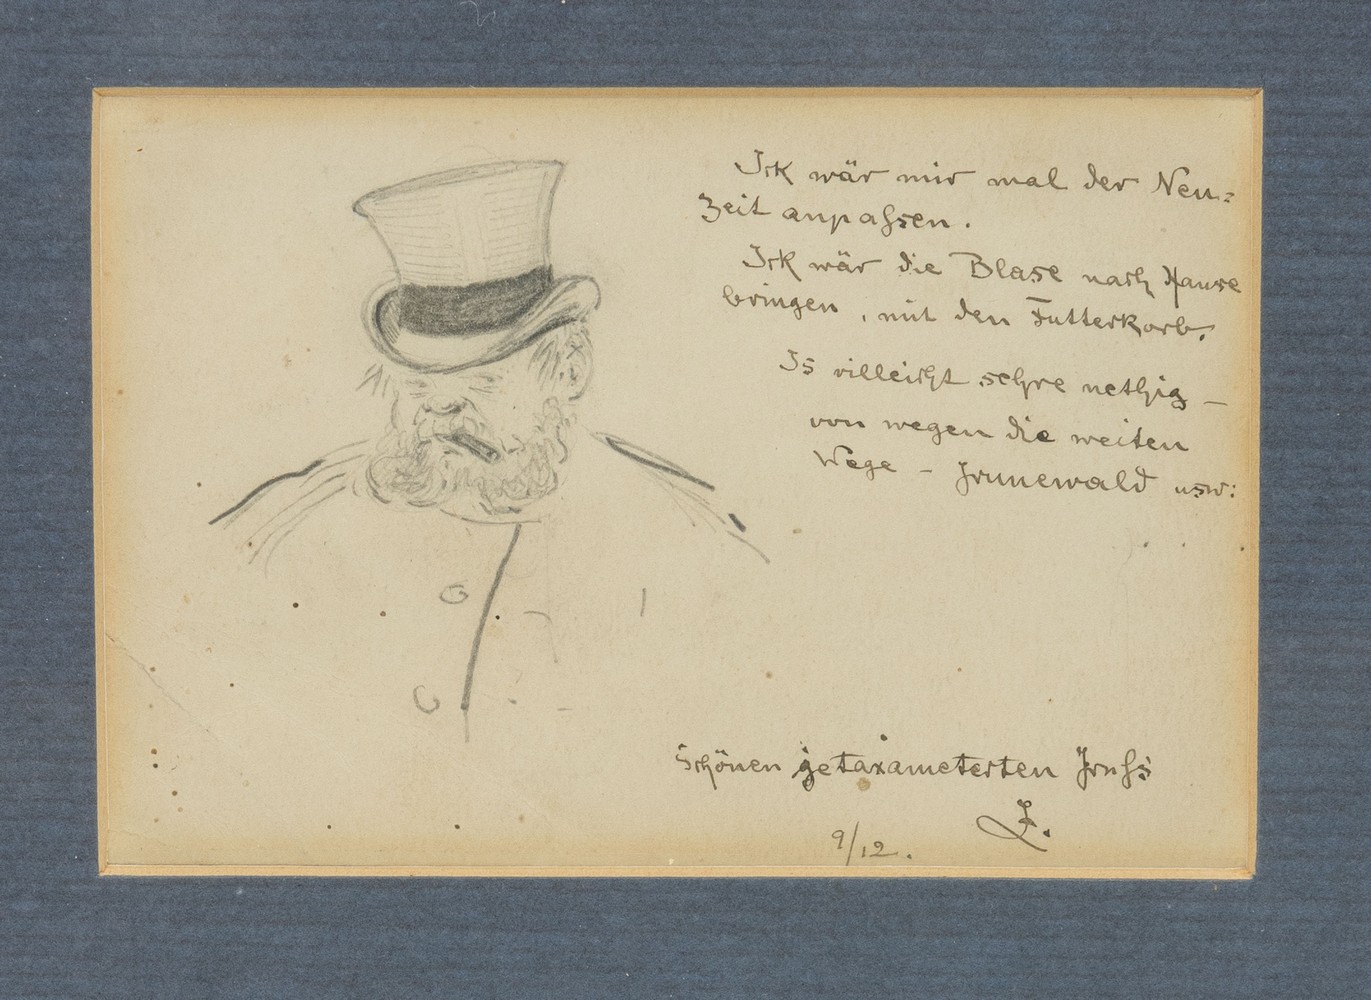 Ick wär mir mal der Neu=
Zeit anpassen.
Ick wär die Blase nach Hause
bringen, mit den Futterkorb.
Is villeicht sehre nethig –
von wegen die weiten
Wege – Jrunewald usw:
Schönen getaxameterten Jruss
Z.
9/12.